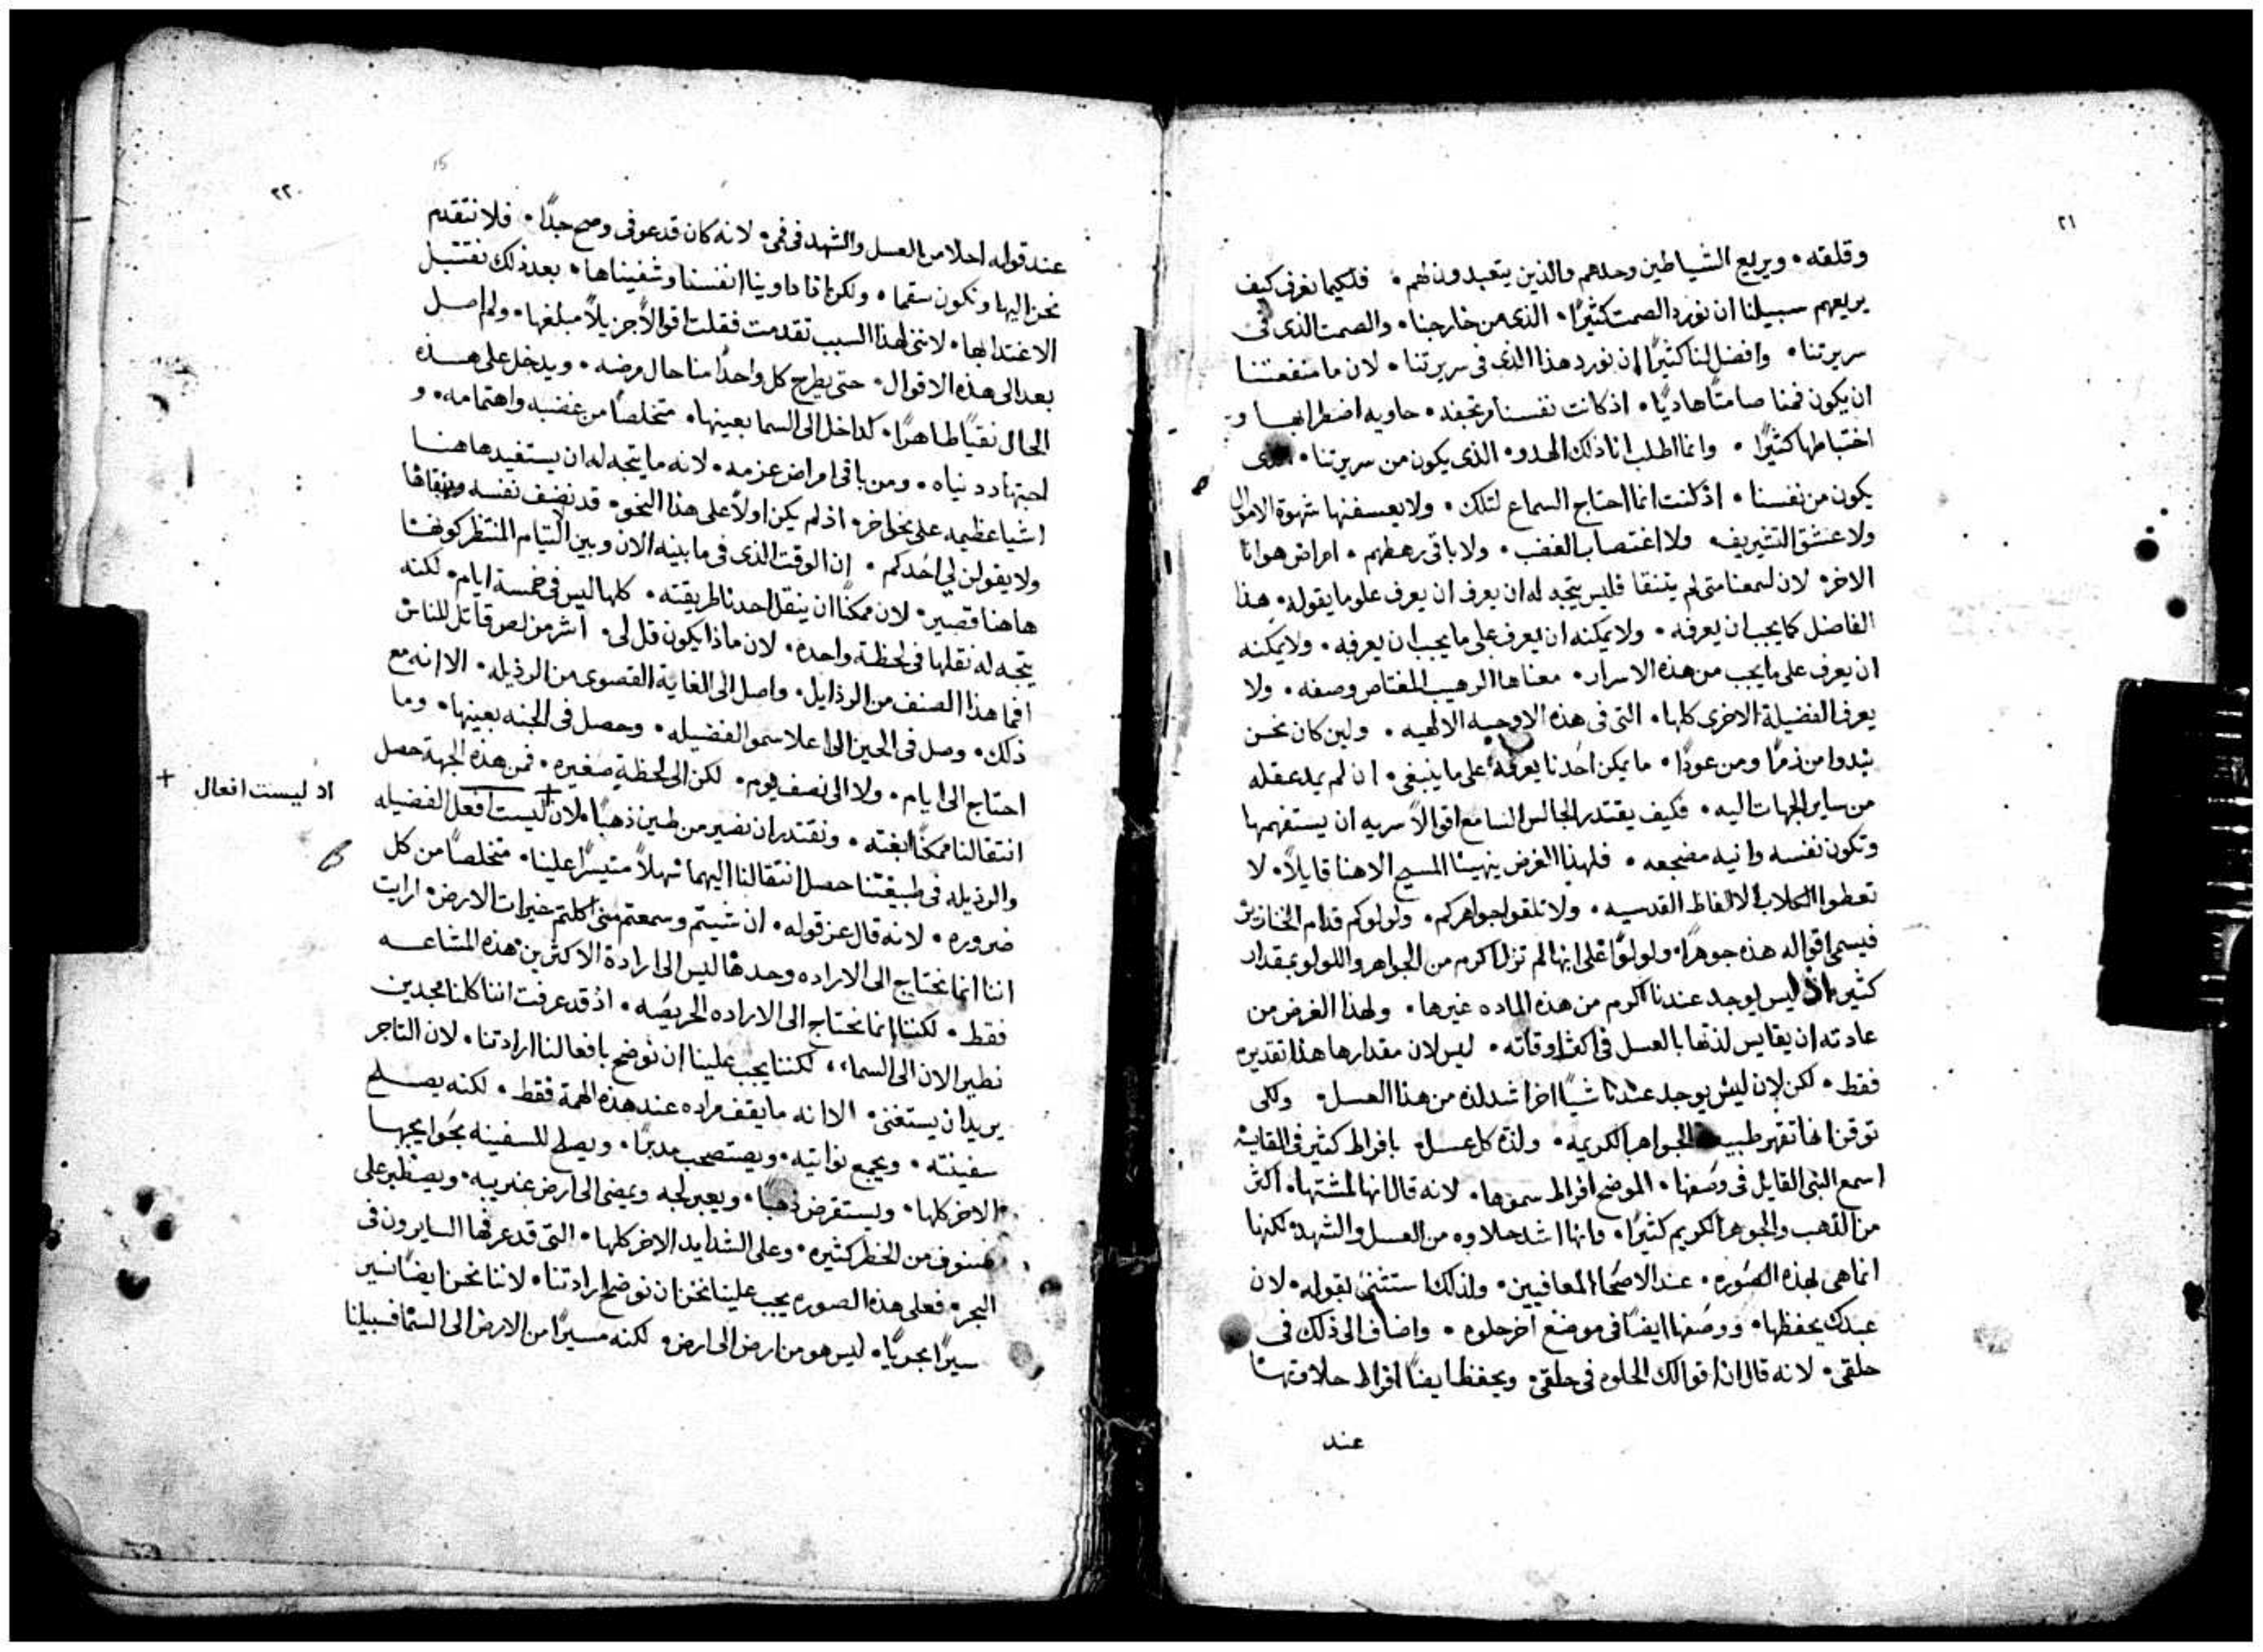 ٢١
وقلقه • ويريع الشياطين وحدهم والذين يتعبدون لهم • فلكيما نعرف كيف
يريعهم سبيلنا ان نورد الصمت كثيرًا • الذى من خارجنا • والصمت الذى فى
سريرتنا • وافضل لنا كثيرًا ان نورد هذا الذى فى سريرتنا • لان ما منفعتنا
ان يكون فمنا صامتًا هاديًا • اذ كانت نفسنا مرتجفه • حاويه اضطرابها و
اختباطها كثيرًا • وانما اطلب انا ذلك الهدوء الذى يكون من سريرتنا • الذى
يكون من نفسنا • اذ كنت انما احتاج السماع لتلك • ولا يعسفنها شهوة الاموال
ولا عشق التشريف • ولا اغتصاب الغضب • ولا باقى رهطهم • امراض هوانا
الاخر • لان لسمعنا متى لم يتنقا فليس يتجه له ان يعرف ان يعرف علو ما يقوله • هذا
الفاضل كما يجب ان يعرفه • ولا يمكنه ان يعرف على ما يجب ان يعرفه • ولا يمكنه
ان يعرف على ما يجب من هذه الاسرار • معناها الرهيب المغتاص وصفه • ولا
يعرف الفضيلة الاخرى كلها • التى فى هذه الاوجيه الالهيه • ولين كان نحسن
نبدوا من زمرًا ومن عودًا • ما يمكن احدنا يعرفه على ما ينبغى • ان لم يمد عقله
من ساير الجهات اليه • فكيف يقتدر الجالس السامع اقوالاً سريه ان يستفهمها
وتكون نفسه وانيه مضجعه • فلهذا الغرض ينهينا المسيح الاهنا قايلاً • لا
تعطوا الكلاب الالفاظ القدسيه • ولا تلقوا جواهركم • ولولوكم قدام الخنازير
فيسمى اقواله هذه جوهرًا • ولولوًا على انها لم تزل اكرم من الجواهر واللولو بمقدار
كثير • اذ ليس يوجد عندنا اكرم من هذه الماده غيرها • ولهذا الغرض من
عادته ان يقايس لذتها بالعسل فى اكثر اوقاته • ليس لان مقدارها هذا تقديره
فقط • لكن لان ليس يوجد عندنا شيًا اخر اشد لذه من هذا العسل • ولكى
توقن انها تقهر طبيعة الجواهر الكريمه • ولذة كل عسل • بافراط كثير فى القايت
اسمع النبى القايل فى وصفها • الموضح افراط سموها • لانه قال انها لمشتهاه اكثر
من الذهب والجوهر الكريم كثيرًا • وانها اشد حلاوه من العسل والشهد • لكنها
انما هى لهذه الصوره • عند الاصحا المعافيين • ولذلك استثنى بقوله • لان
عبدك يحفظها • ووصفها ايضًا فى موضع اخر حلوه • واضاف الى ذلك فى
حلقى • لانه قال ان اقوالك الحلوه فى حلقى • ويحفظ ايضًا افراط حلاوتها
عند
٢٢
15
عند قوله احلا من العسل والشهد فى فمى • لانه كان قد عوفى وصح جدًا • فلا نتقدم
نحن اليها ونكون سقما • ولكن اذا داوينا انفسنا وشفيناها • بعد ذلك نقتبل
الاغتدا بها • لاننى لهذا السبب تقدمت فقلت اقوالاً جزيلاً مبلغها • ولم اصل
بعد الى هذه الاقوال • حتى يطرح كل واحدًا منا حال مرضه • ويدخل على هذه
الحال نقيًا طاهرًا • كداخل الى السما بعينها • متخلصًا من غضبه واهتمامه • و
اجتهاد دنياه • ومن باقى امراض عزمه • لانه ما يتجه له ان يستفيد هاهنا
اشيا عظيمه على نحو اخر • اذ لم يكن اولاً على هذا النحو • قد نضف نفسه ونقاها
ولا يقولن لى احدكم • ان الوقت الذى فى ما بينه الان وبين التيام المنتظر كونه
هاهنا قصير • لان ممكنًا ان ينقل احدنا طريقته • كلها ليس فى خمسة ايام • لكنه
يتجه له نقلها فى لحظة واحده • لان ماذا يكون قل لى • اشر من لص قاتل للناس
افما هذا الصنف من الرذايل • واصل الى الغاية القصوى من الرذيله • الا انه مع
ذلك • وصل فى الحين الى اعلا سمو الفضيله • وحصل فى الجنه بعينها • وما
احتاج الى ايام • ولا الى نصف يوم • لكن الى لحظة صغيره • فمن هذه الجهة حصل
انتقالنا ممكنًا بغته • ونقتدر ان نصير من طين ذهبًا • لان + ليست افعل الفضيله
+ اذ ليست افعال
والرذيله فى طبيعتنا حصل انتقالنا اليهما سهلاً متيسرًا علينا • متخلصًا من كل
ضروره • لانه قال عز قوله • ان شيتم وسمعتم منى اكلتم خيرات الارض • ارايت
اننا انما نحتاج الى الاراده وحدها ليس الى ارادة الاكثرين هذه المشاعه
فقط • لكننا انما نحتاج الى الاراده الحريصه • اذ قد عرفت اننا كلنا مجدين
نطير الان الى السما • لكننا يجب علينا ان نوضح بافعالنا ارادتنا • لان التاجر
يريد ان يستغنى • الا انه ما يقف مراده عند هذه الهمة فقط • لكنه يصلح
سفينته • ويجمع نواتيه • ويستصحب مدبرًا • ويصلح للسفينه بحوايجها
الاخر كلها • ويستقرض ذهبًا • ويعبر لجه ويمضى الى ارض غريبه • ويصطبر على
صنوف من الخطر كثيره • وعلى الشدايد الاخر كلها • التى قد عرفها السايرون فى
البحر • فعلى هذه الصوره يجب علينا نحن ان نوضح ارادتنا • لاننا نحن ايضًا نسير
سيرًا بحريًا • ليس هو من ارض الى ارض • لكنه مسيرًا من الارض الى السما فسبيلنا